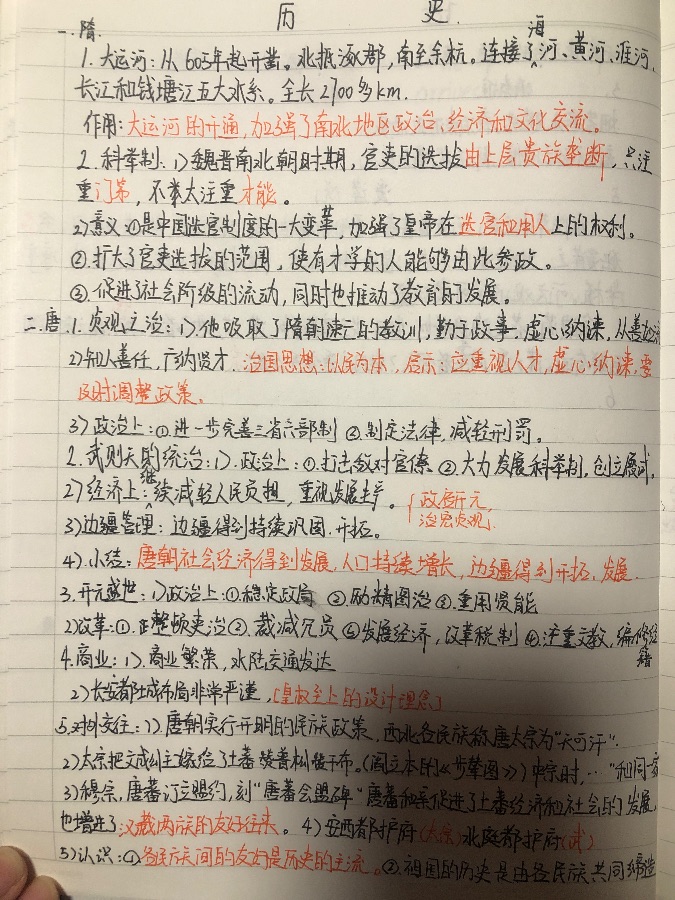 历 史.
一.隋.
1.大运河:从605年起开凿。北抵涿郡,南至余杭。连接了海河、黄河、淮河、
长江和钱塘江五大水系。全长2700多km.
作用:大运河的开通,加强了南北地区政治、经济和文化交流。
2.科举制:1)魏晋南北朝时期,官吏的选拔由上层贵族垄断,只注
重门第,不举太注重才能。
2)意义:①是中国选官制度的一大变革,加强了皇帝在选官和用人上的权利。
②.扩大了官吏选拔的范围,使有才学的人能够由此参政。
③.促进了社会阶级的流动,同时也推动了教育的发展。
二.唐.1.贞观之治:1)他吸取了隋朝速亡的教训,勤于政事.虚心纳谏,从善如流
2)知人善任,广纳贤才.治国思想:以民为本,启示:应重视人才,虚心纳谏,要
及时调整政策.
3)政治上:①.进一步完善三省六部制 ②.制定法律,减轻刑罚。
2.武则天的统治:1).政治上:①.打击敌对官僚 ②.大力发展科举制,创立殿试.
2)经济上:继续减轻人民负担,重视发展生产。{政启开元,
治宏贞观.
3)边疆管理:边疆得到持续巩固.开拓。
4).小结:唐朝社会经济得到发展,人口持续增长,边疆得到开拓、发展.
3.开元盛世:1)政治上:①稳定政局 ②励精图治③.重用贤能
2)改革:①.整顿吏治②.裁减冗员 ③发展经济,改革税制 ④.注重文教,编修经籍
4.商业:1).商业繁荣,水陆交通发达
2)长安都城布局非常严谨,[皇权至上的设计理念]
5.对外交往:1).唐朝实行开明的民族政策,西北各民族称唐太宗为"天可汗".
2)太宗把文成公主嫁给了吐蕃赞普松赞干布。(阎立本的《步辇图》)中宗时,.."和同一家
3)穆宗,唐蕃订立盟约,刻"唐蕃会盟碑"唐蕃和亲促进了土番经济和社会的发展,
也增进了汉藏两族的友好往来。4)安西都护府(太宗)北庭都护府(武)
5)认识:①各民族间的友好是历史的主流。②.祖国的历史是由各民族共同缔造